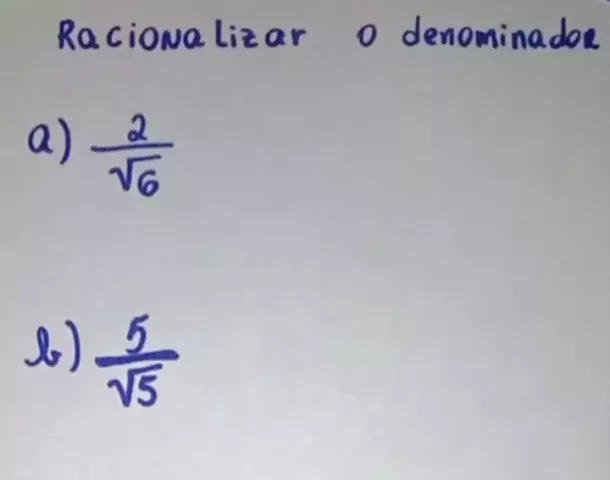 Racionalizar o denominador
a) 2/√6
b) 5/√5